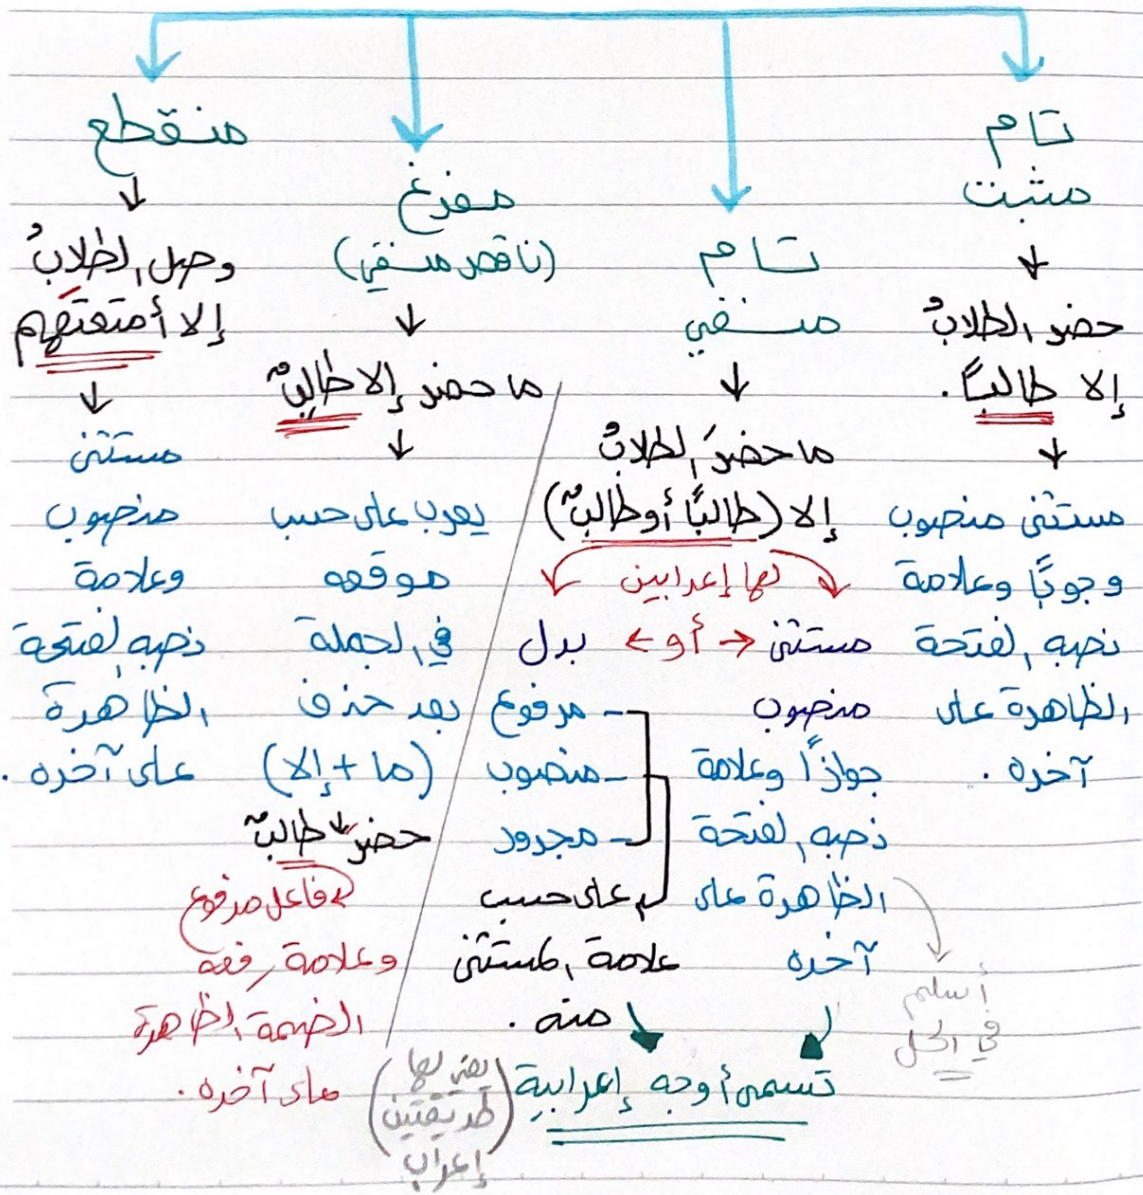 تام
مثبت
حضر الطلابُ
إلا طالبًا.
مستثنى منصوب
وجوبًا وعلامة
نصبه الفتحة
الظاهرة على
آخره.
تام
منفي
ما حضرَ الطلابُ
إلا (طالبًا أو طالبٌ)
لها إعرابين
مستثنى → أو ← بدل
منصوب
جوازًا وعلامة
نصبه الفتحة
الظاهرة على
آخره
أسلم
في الحل
- مرفوع
- منصوب
- مجرور
على حسب
علامة المستثنى
منه.
تسمى أوجه إعرابية
(يعني لها
طريقتين
إعراب)
مفرغ
(ناقص منفي)
ما حضر إلا طالبٌ
يعرب على حسب
موقعه
في الجملة
بعد حذف
(ما + إلا)
حضر طالبٌ
فاعل مرفوع
وعلامة رفعه
الضمة الظاهرة
على آخره.
منقطع
وصل الطلابُ
إلا أمتعتَهم
مستثنى
منصوب
وعلامة
نصبه الفتحة
الظاهرة
على آخره.